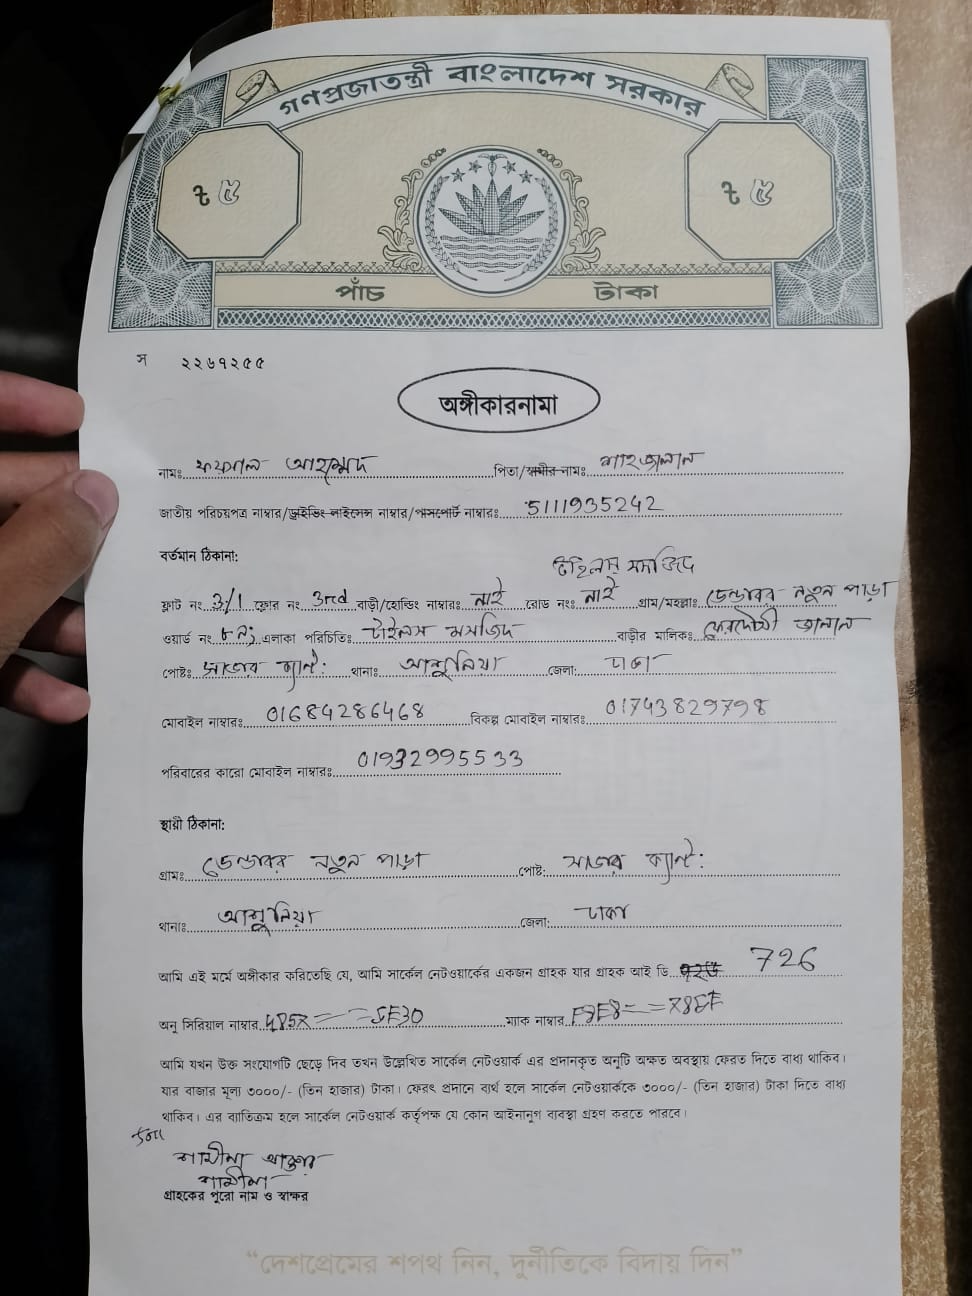 গণপ্রজাতন্ত্রী বাংলাদেশ সরকার
৳ ৫ ৳ ৫
পাঁচ টাকা
স ২২৬৭২৫৫
অঙ্গীকারনামা
নামঃ ফয়সাল আহম্মদ পিতা/স্বামীর নামঃ শাহজালাল
জাতীয় পরিচয়পত্র নাম্বার/ড্রাইভিং লাইসেন্স নাম্বার/পাসপোর্ট নাম্বারঃ 5111935242
বর্তমান ঠিকানা:
টাইলস মসজিদ
ফ্লাট নং 3/1 ফ্লোর নং 3rd বাড়ী/হোল্ডিং নাম্বারঃ নাই রোড নংঃ নাই গ্রাম/মহল্লাঃ ডেন্ডাবর নতুন পাড়া
ওয়ার্ড নং ৮ নং এলাকা পরিচিতিঃ টাইলস মসজিদ বাড়ীর মালিকঃ ফেরদৌসী জালাল
পোষ্টঃ সাভার ক্যান্ট: থানাঃ আশুলিয়া জেলা: ঢাকা
মোবাইল নাম্বারঃ 01684286468 বিকল্প মোবাইল নাম্বারঃ 01743829798
পরিবারের কারো মোবাইল নাম্বারঃ 01932995533
স্থায়ী ঠিকানা:
গ্রামঃ ডেন্ডাবর নতুন পাড়া পোষ্ট: সাভার ক্যান্ট:
থানাঃ আশুলিয়া জেলা: ঢাকা
আমি এই মর্মে অঙ্গীকার করিতেছি যে, আমি সার্কেল নেটওয়ার্কের একজন গ্রাহক যার গ্রাহক আই ডি 726
অনু সিরিয়াল নাম্বার 485X = = 5E30 ম্যাক নাম্বার
আমি যখন উক্ত সংযোগটি ছেড়ে দিব তখন উল্লেখিত সার্কেল নেটওয়ার্ক এর প্রদানকৃত অনুটি অক্ষত অবস্থায় ফেরত দিতে বাধ্য থাকিব।
যার বাজার মূল্য ৩০০০/- (তিন হাজার) টাকা। ফেরৎ প্রদানে ব্যর্থ হলে সার্কেল নেটওয়ার্ককে ৩০০০/- (তিন হাজার) টাকা দিতে বাধ্য
থাকিব। এর ব্যতিক্রম হলে সার্কেল নেটওয়ার্ক কর্তৃপক্ষ যে কোন আইনানুগ ব্যবস্থা গ্রহণ করতে পারবে।
শামীমা আক্তার
শামীমা
গ্রাহকের পুরো নাম ও স্বাক্ষর
“দেশপ্রেমের শপথ নিন, দুর্নীতিকে বিদায় দিন”